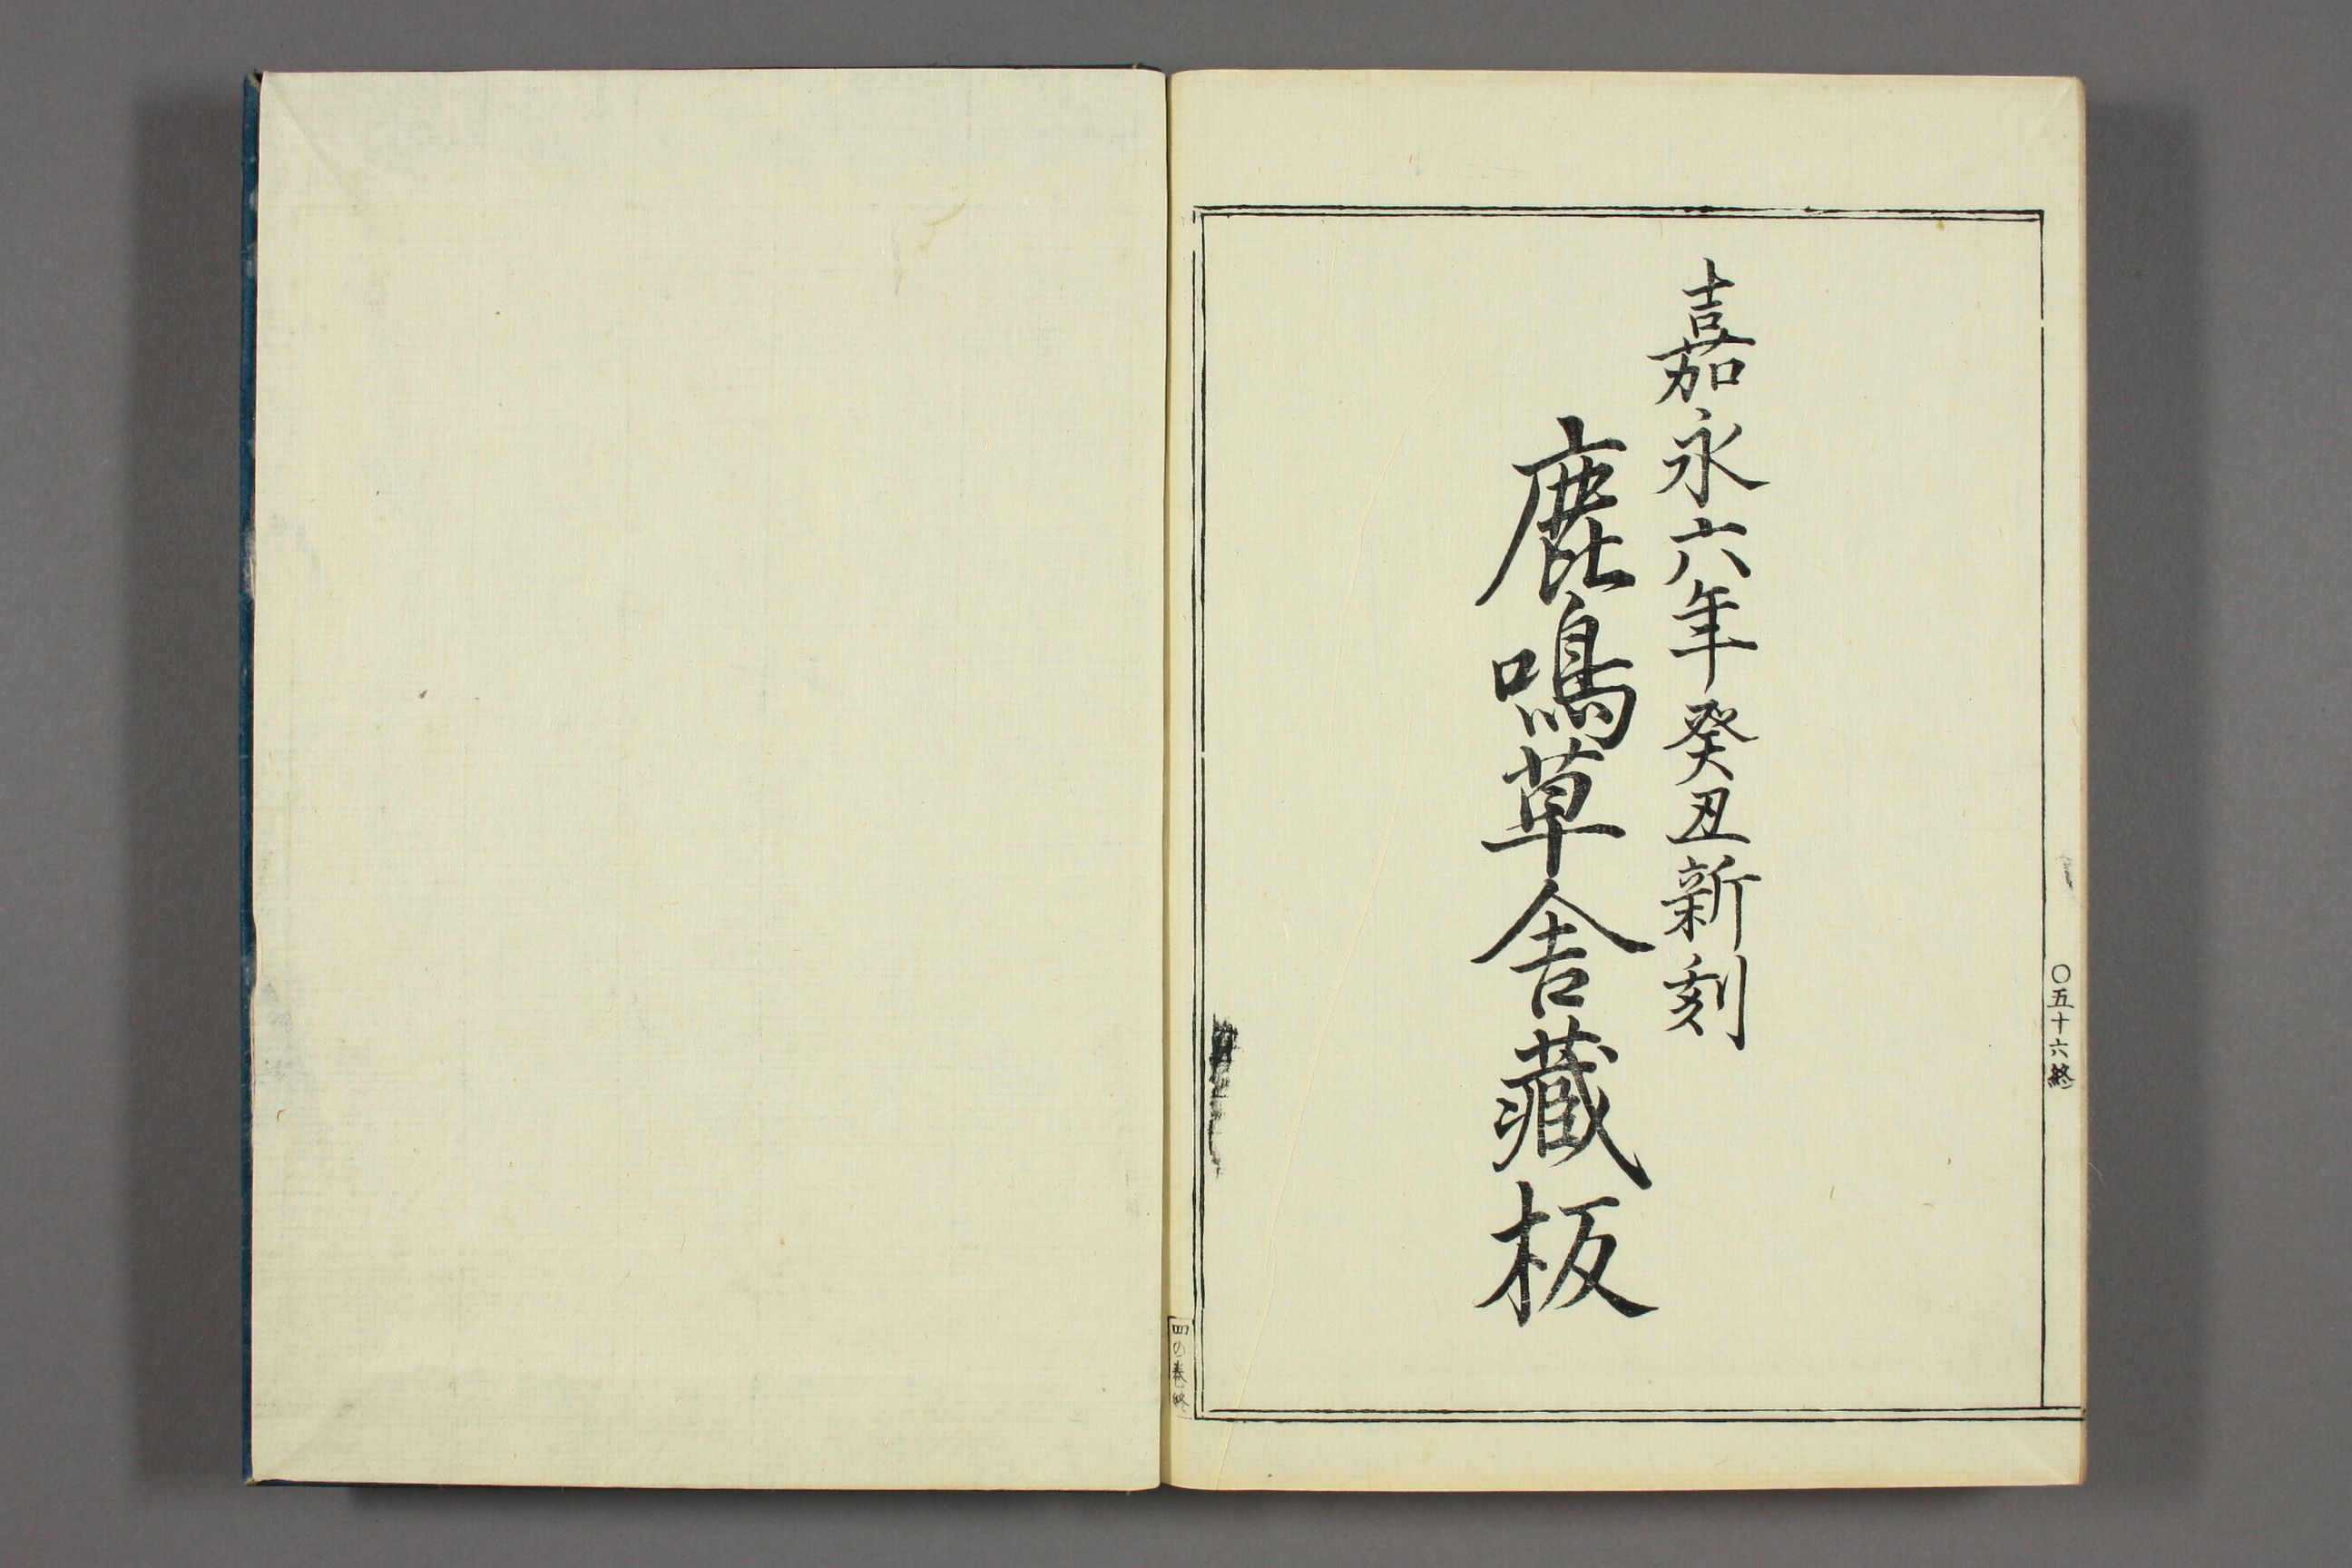 嘉永六年癸丑新刻
鹿鳴草舎藏板
〇五十六終
四の巻終